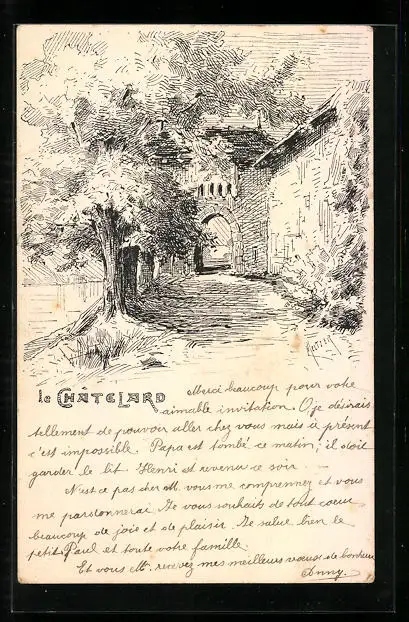 le CHÂTELARD
Merci beaucoup pour votre
aimable invitation. O je désirais
tellement de pouvoir aller chez vous mais à présent
c'est impossible. Papa est tombé ce matin; il doit
garder le lit. Henri est revenu ce soir.
N'est ce pas cher M. vous me comprennez et vous
me pardonnerai. Je vous souhaits de tout cœur
beaucoup de joie et de plaisir. Je salue bien le
petit Paul et toute votre famille.
Et vous M. recevez mes meilleurs vœux de bonheur
Anny.